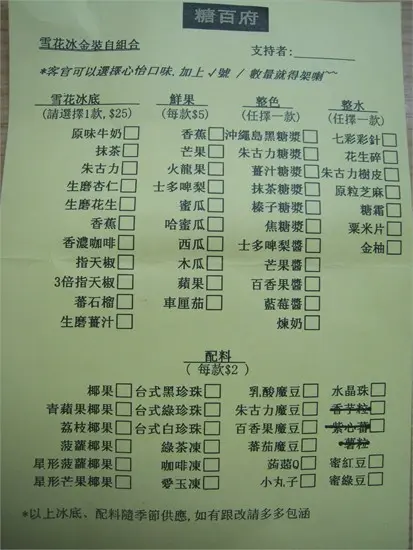 糖百府
雪花冰金裝自組合 支持者:
*客官可以選擇心怡口味.加上✓號 / 數量就得架喇~~
雪花冰底 鮮果 整色 整水
(請選擇1款, $25) (每款$5) (任擇一款) (任擇一款)
原味牛奶□ 香蕉□ 沖繩島黑糖漿□ 七彩彩針□
抹茶□ 芒果□ 朱古力糖漿□ 花生碎□
朱古力□ 火龍果□ 薑汁糖漿□ 朱古力樹皮□
生磨杏仁□ 士多啤梨□ 抹茶糖漿□ 原粒芝麻□
生磨花生□ 蜜瓜□ 榛子糖漿□ 糖霜□
香蕉□ 哈蜜瓜□ 焦糖漿□ 粟米片□
香濃咖啡□ 西瓜□ 士多啤梨醬□ 金柚□
指天椒□ 木瓜□ 芒果醬□
3倍指天椒□ 蘋果□ 百香果醬□
蕃石榴□ 車厘茄□ 藍莓醬□
生磨薑汁□ 煉奶□
配料
( 每款$2 )
椰果□ 台式黑珍珠□ 乳酸魔豆□ 水晶珠□
青蘋果椰果□ 台式綠珍珠□ 朱古力魔豆□ 香芋粒□
荔枝椰果□ 台式白珍珠□ 百香果魔豆□ 紫心蕃
菠蘿椰果□ 綠茶凍□ 蕃茄魔豆□ 薯粒□
星形菠蘿椰果□ 咖啡凍□ 蒟蒻Q□ 蜜紅豆□
星形芒果椰果□ 愛玉凍□ 小丸子□ 蜜綠豆□
*以上冰底、配料隨季節供應, 如有跟改請多多包涵